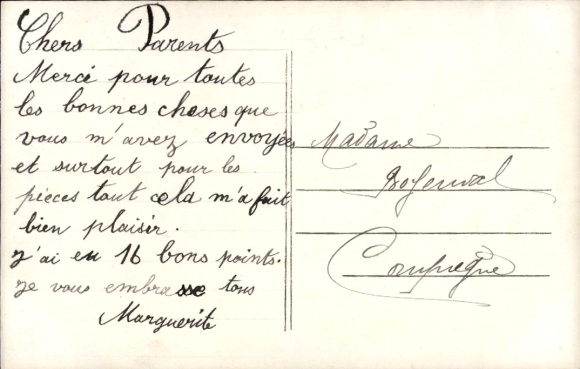 Chers Parents
Mercé pour toutes
les bonnes choses que
vous m'avez envoyées
et surtout pour les
pièces tout cela m'a fait
bien plaisér.
j'ai eu 16 bons points.
je vous embrasse tous
Marguerite
Madame
Compiègne